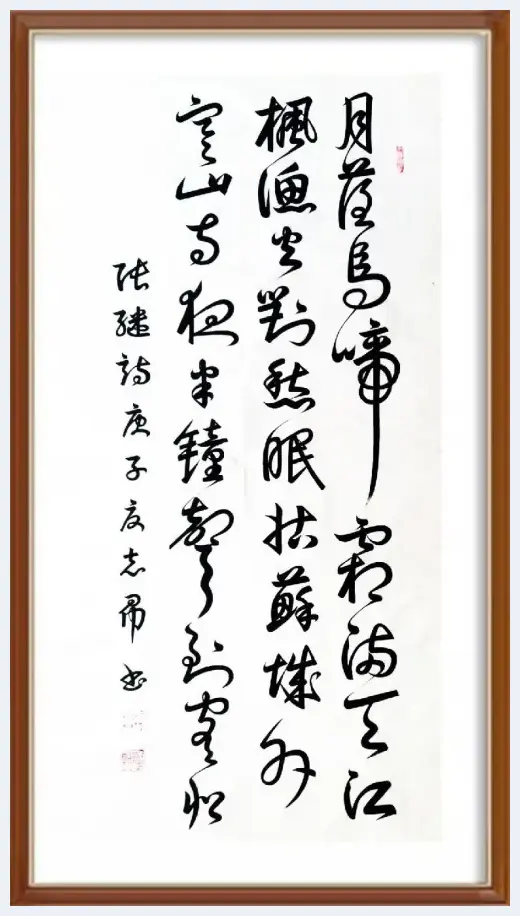 月落烏啼霜滿天江
楓漁火對愁眠姑蘇城外
寒山寺夜半鐘聲到客船
張繼詩庚子夏志書